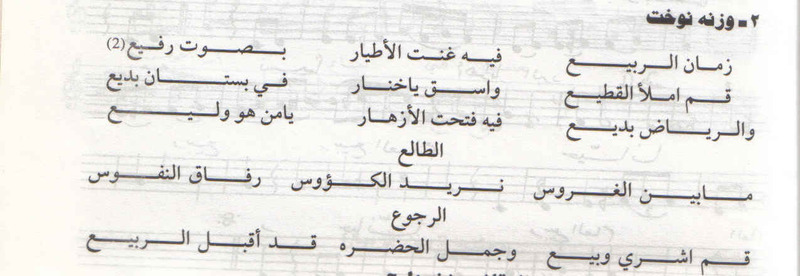 ٢ - وزنه نوخت
زمان الربيع فيه غنت الأطيار بصوت رفيع (2)
قم املأ القطيع واسق ياخنار في بستان بديع
والرياض بديع فيه فتحت الأزهار يامن هو وليع
الطالع
مابين الغروس نريد الكؤوس رفاق النفوس
الرجوع
قم اشري وبيع وجمل الحضره قد أقبل الربيع